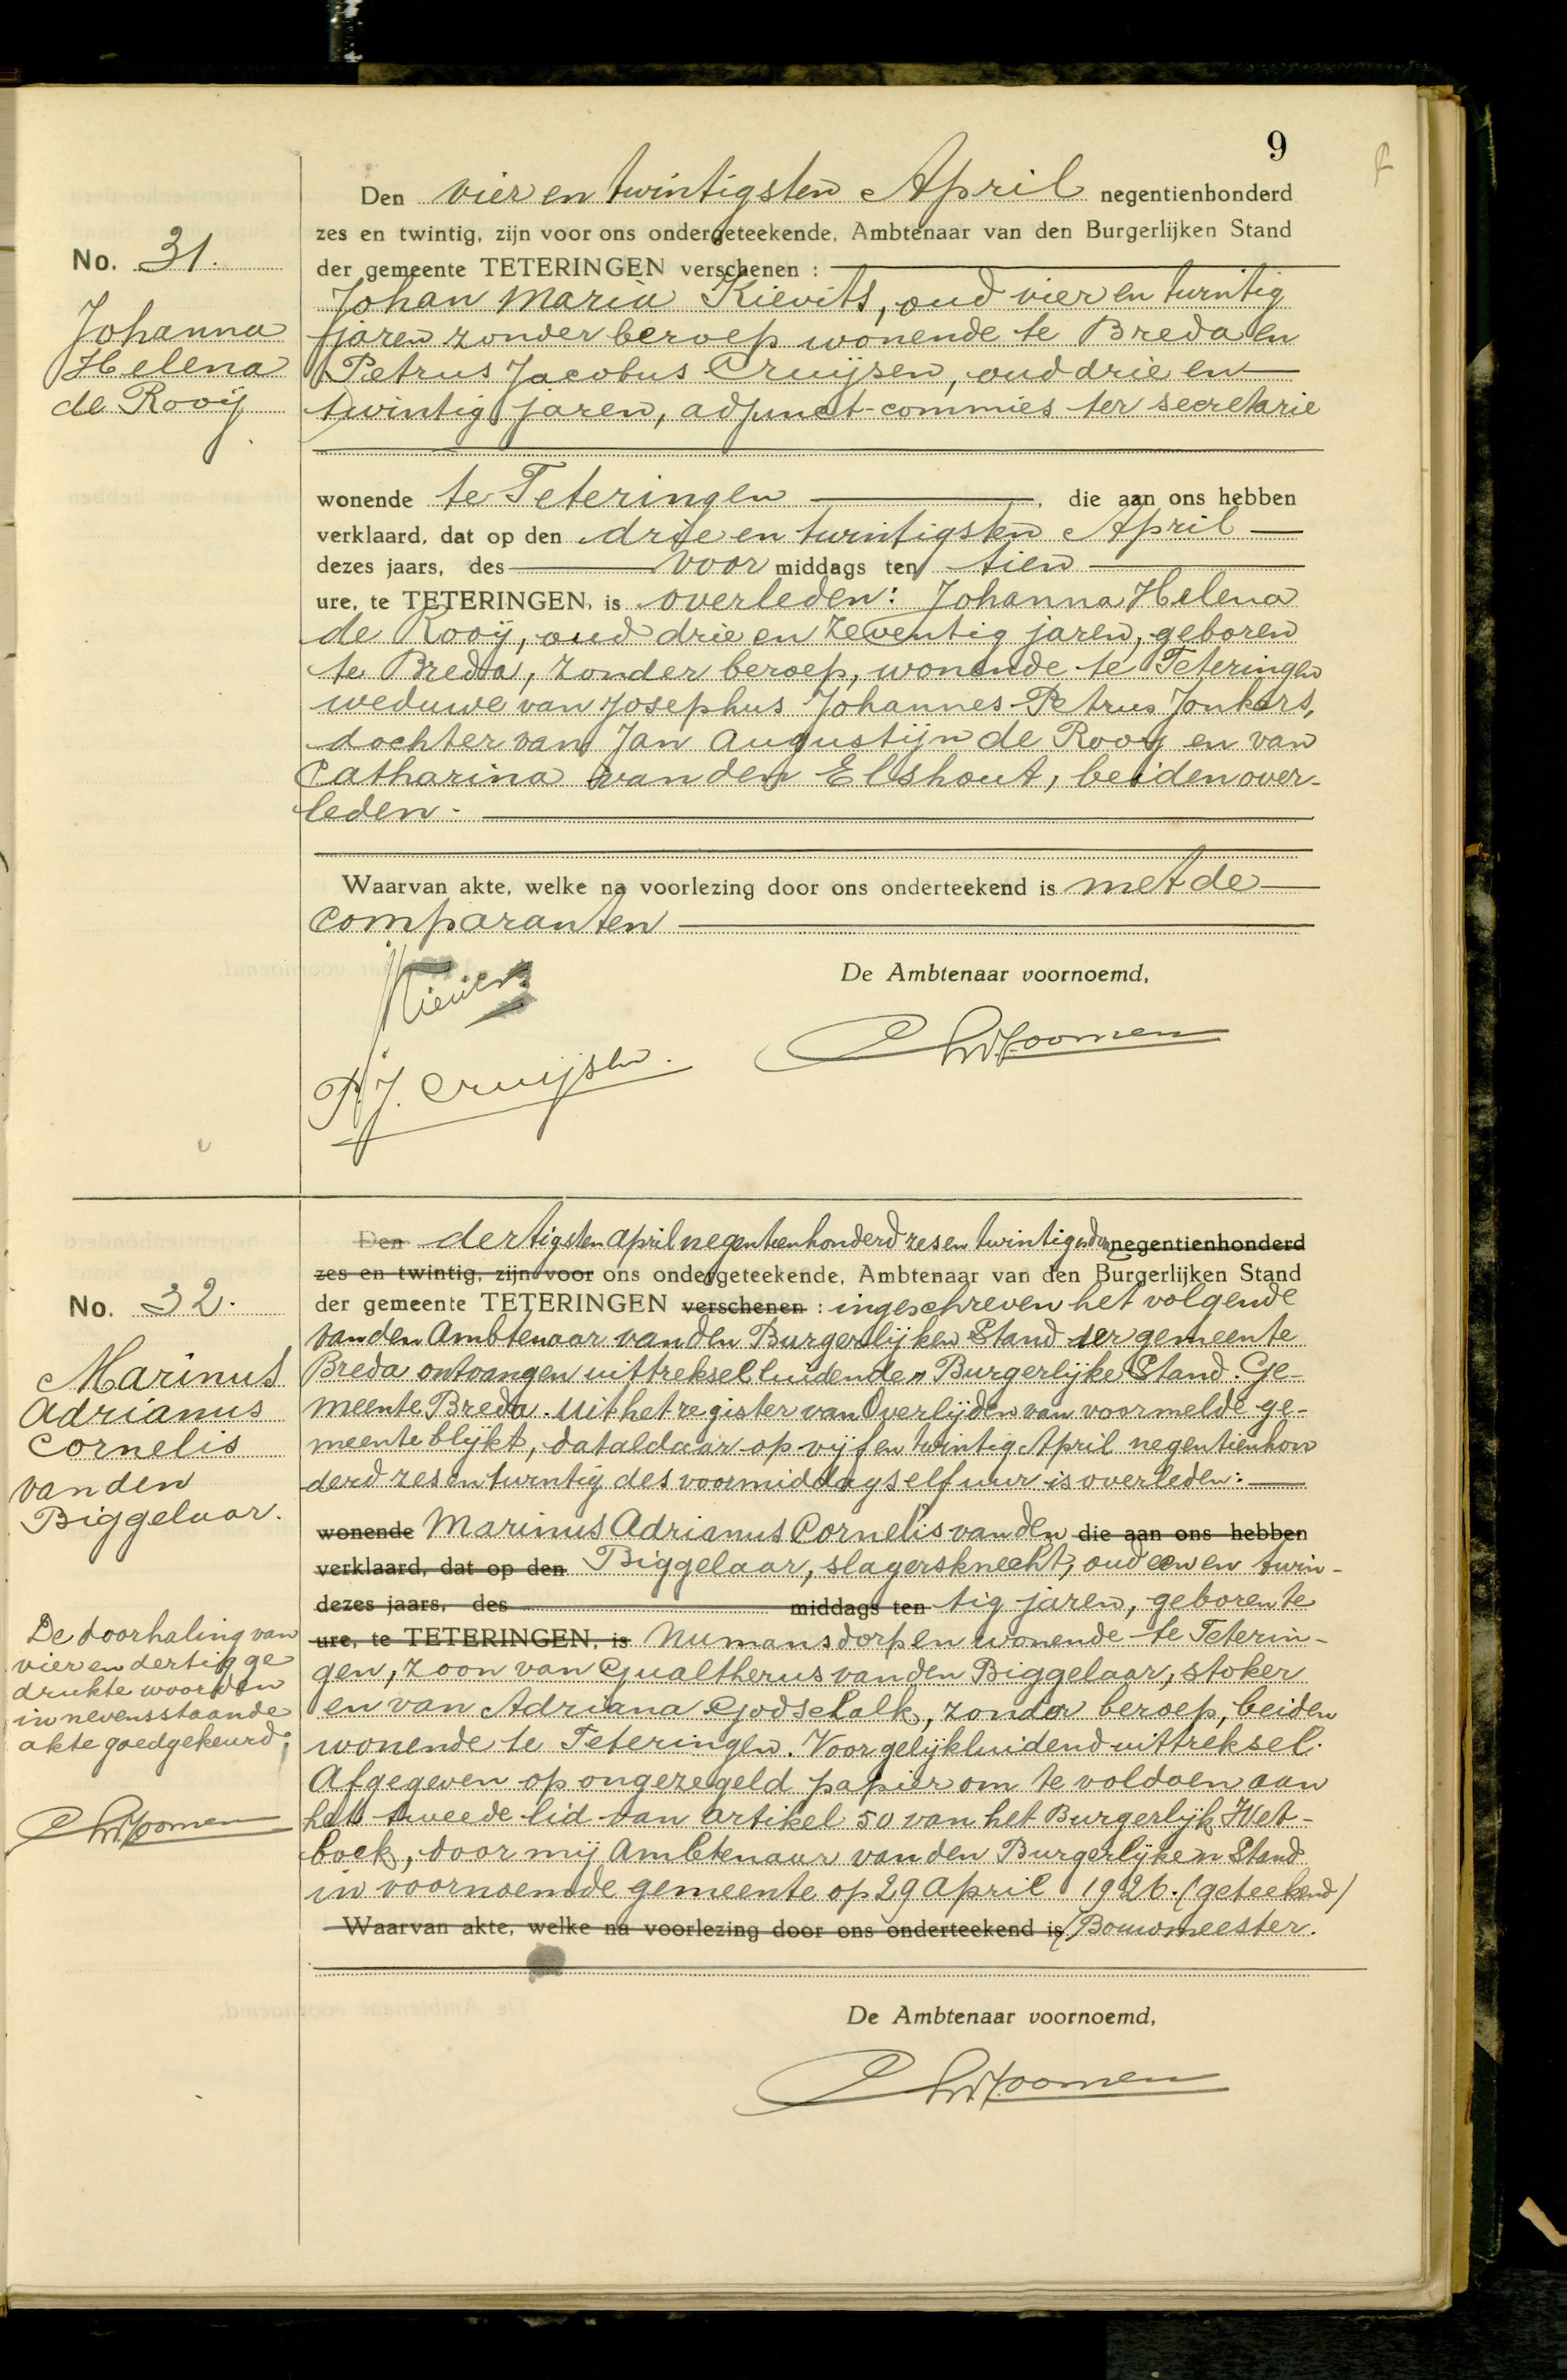 9
Den vier en twintigsten April negentienhonderd
zes en twintig, zijn voor ons ondergeteekende, Ambtenaar van den Burgerlijken Stand
der gemeente TETERINGEN verschenen :
No. 31.
Johanna
Helena
de Rooij
Johan Maria Kievits, oud vier en twintig
jaren zonder beroep wonende te Breda en
Petrus Jacobus Cruijsen, oud drie en
twintig jaren, adjunct-commies ter secretarie
wonende te Teteringen , die aan ons hebben
verklaard, dat op den drie en twintigsten April
dezes jaars, des voor middags ten tien
ure, te TETERINGEN, is overleden: Johanna Helena
de Rooij, oud drie en zeventig jaren, geboren
te Breda, zonder beroep, wonende te Teteringen
weduwe van Josephus Johannes Petrus Jonkers,
dochter van Jan Augustijn de Rooy en van
Catharina van den Elshout, beiden over-
leden.
Waarvan akte, welke na voorlezing door ons onderteekend is met de
comparanten
De Ambtenaar voornoemd,
Kievits
P.J. Cruijsen.
Den dertigsten April negentienhonderd zes en twintig is door negentienhonderd
zes en twintig, zijn voor ons ondergeteekende, Ambtenaar van den Burgerlijken Stand
der gemeente TETERINGEN verschenen : ingeschreven het volgende
No. 32.
Marinus
Adrianus
Cornelis
van den
Biggelaar.
van den Ambtenaar van den Burgerlijken Stand der gemeente
Breda ontvangen uittreksel luidende "Burgerlijke Stand. Ge-
meente Breda. Uit het register van Overlijden van voormelde ge-
meente blijkt, dat aldaar op vijf en twintig April negentienhon
derd zes en twintig des voormiddags elf uur is overleden:
wonende Marinus Adrianus Cornelis van den die aan ons hebben
verklaard, dat op den Biggelaar, slagersknecht, oud een en twin-
dezes jaars, des middags ten tig jaren, geboren te
ure, te TETERINGEN, is Numansdorp en wonende te Teterin-
gen, zoon van Gualtherus van den Biggelaar, stoker
en van Adriana Godschalk, zonder beroep, beiden
wonende te Teteringen. Voor gelijkluidend uittreksel.
Afgegeven op ongezegeld papier om te voldoen aan
het tweede lid van artikel 50 van het Burgerlijk Wet-
boek, door mij Ambtenaar van den Burgerlijken Stand
in voornoemde gemeente op 29 April 1926. (geteekend)
Waarvan akte, welke na voorlezing door ons onderteekend is (Bouwmeester.
De doorhaling van
vier en dertig ge
drukte woorden
in nevensstaande
akte goedgekeurd.
De Ambtenaar voornoemd,